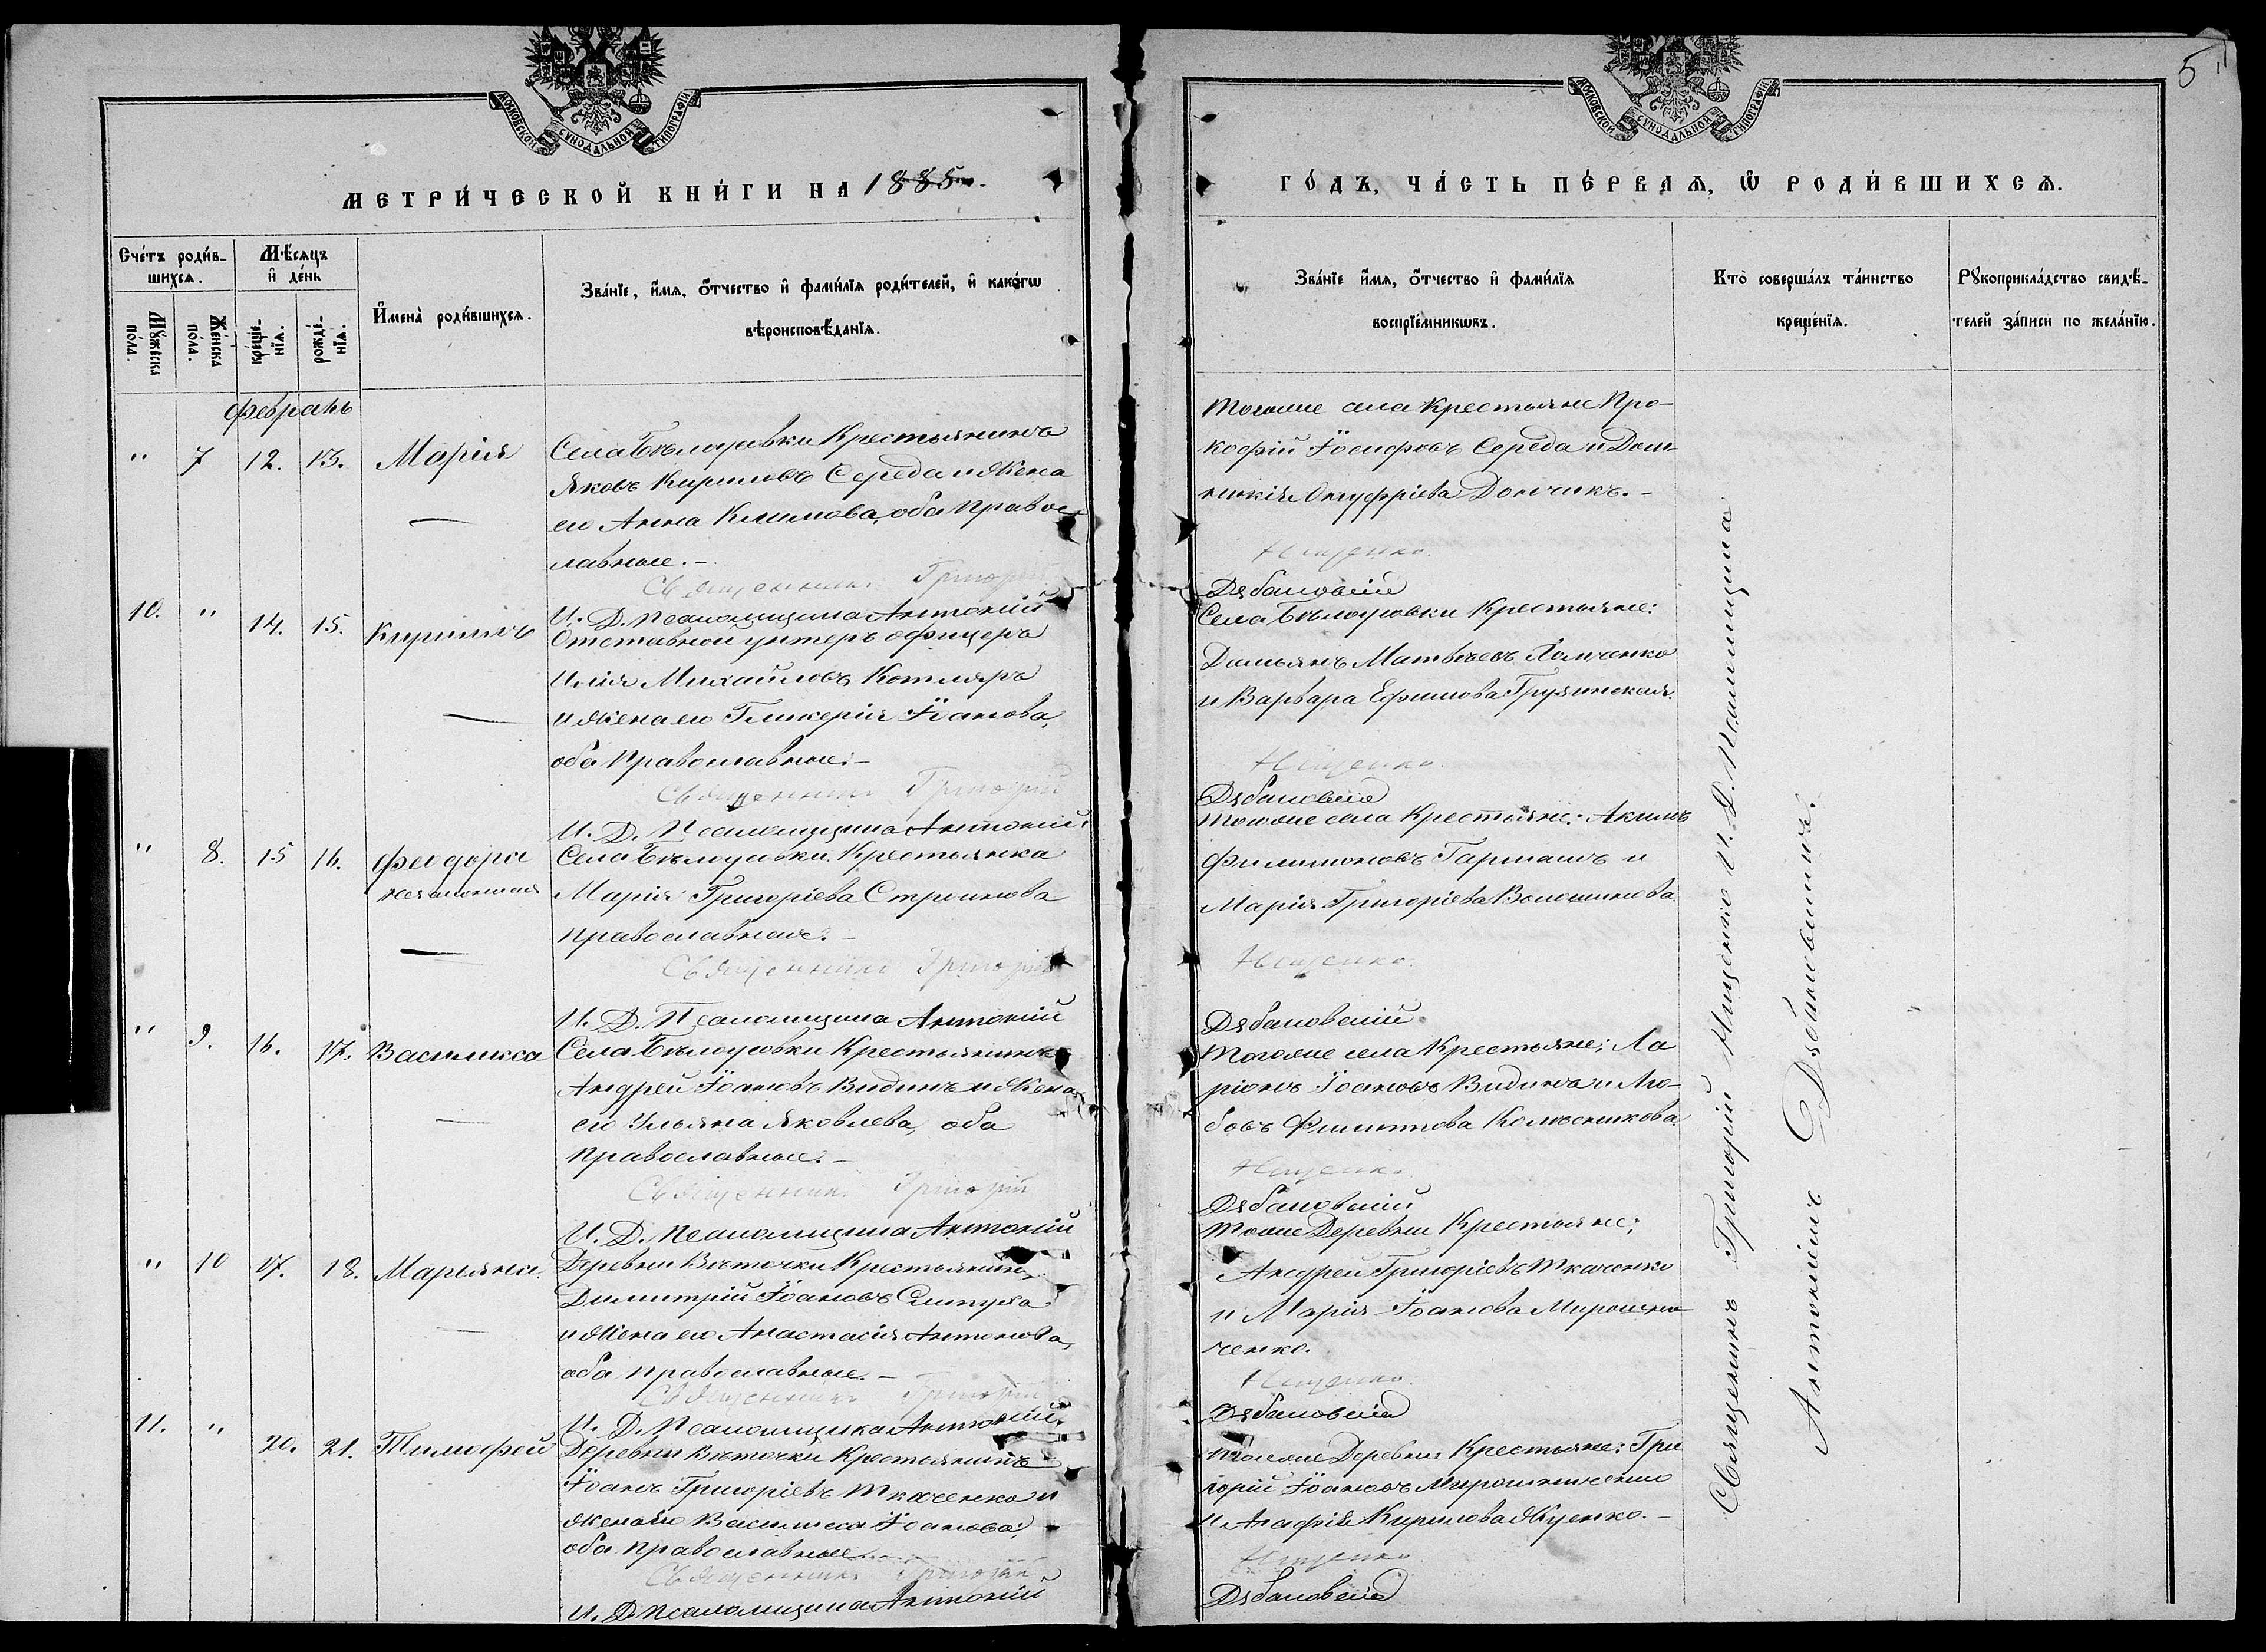 5
МОСКОВСКОЙ СѴНОДАЛЬНОЙ ТИПОГРАФІИ
МОСКОВСКОЙ СѴНОДАЛЬНОЙ ТИПОГРАФІИ
МЕТРИ́ЧЕСКОЙ КНИ́ГИ НА 1885
ГО́ДЪ, ЧА́СТЬ ПЕ́РВАѦ, Ѿ РОДИ́ВШИХСѦ.
Сче́тъ роди́в-
шихсѧ.
Мꙋ́жеска по́ла.
Же́нска по́ла.
Мѣ́сѧцъ
и҆ де́нь
креще́-
нїѧ.
рожде́-
нїѧ.
И҆мена̀ роди́вшихсѧ.
Зва́нїе, и҆́мѧ, ѻ҆́тчество и҆ фами́лїѧ роди́телей, и҆ како́гѡ
вѣроисповѣ́данїѧ.
Зва́нїе и҆́мѧ, ѻ҆́тчество и҆ фами́лїѧ
воспрїе́мникѡвъ.
Кто̀ соверша́лъ та́инство
креще́нїѧ.
Рꙋкоприкла́дство свидѣ́-
телей за́писи по жела́нїю.
Февраль
" 7 12. 13. Марія
Села Бѣлоусовки Крестьянинъ
Яковъ Кириловъ Середа и жена
его Анна Климова, оба правос-
лавные. –
Священникъ Григорій
И. Д. Псаломщика Антоній
Тогоже села Крестьяне Про-
кофій Іосифовъ Середа и Дом-
никія Онуфріева Дончикъ. –
Нищенко.
Дзбановскій
10. " 14. 15. Кириллъ
Отставной унтеръ офицеръ
Илія Михайловъ Котляръ
и жена его Гликерія Іоанова,
оба Православные. –
Священникъ Григорій
И. Д. Псаломщика Антоній
Села Бѣлоусовки Крестьяне:
Дамьянъ Матвѣевъ Хомченко
и Варвара Ефимова Грузинская.
Нищенко.
Дзбановскій
" 8. 15 16. Феодора
незаконная
Села Бѣлоусовки Крестьянка
Марія Григоріева
православная. –
Священникъ Григорій
И. Д. Псаломщика Антоній
Тогоже села Крестьяне: Акимъ
Филимоновъ Гармашъ и
Марія Григоріева Волошинова.
Нищенко.
Дзбановскій
" 9. 16. 17. Василисса
Села Бѣлоусовки Крестьянинъ
Андрей Іоановъ Видинъ и жена
его Ульяна Яковлева, оба
православные. –
Священникъ Григорій
И. Д. Псаломщика Антоній
Тогоже села Крестьяне; Ла
ріонъ Іоановъ Видинъ и Лю-
бовь Филиппова Колѣсникова
Нищенко
Дзбановскій
" 10 17. 18. Марьяна.
Деревни Вѣточки Крестьянинъ
Димитрій Іоановъ
и жена его Анастасія Антонова,
оба православные. –
Священникъ Григорій
И. Д. Псаломщика Антоній
Тоже Деревни Крестьяне;
Андрей Григоріевъ Ткаченко
и Марія Іоанова Мирошни-
ченко.
Нищенко.
Дзбановскій
11. " 20. 21. Тимофей
Деревни Вѣточки Крестьянинъ
Іоанъ Григоріевъ Ткаченко и
жена его Василисса Іоанова,
оба православные
Священникъ Григорій
И. Д. Псаломщика Антоній
Деревни Крестьяне: Гри
горій Іоановъ Мирошниченко
и Агафія Кирилова
Нищенко
Дзбановскій
Священникъ Григорій Нищенко И. Д. Псаломщика
Антоній Дзбановскій.